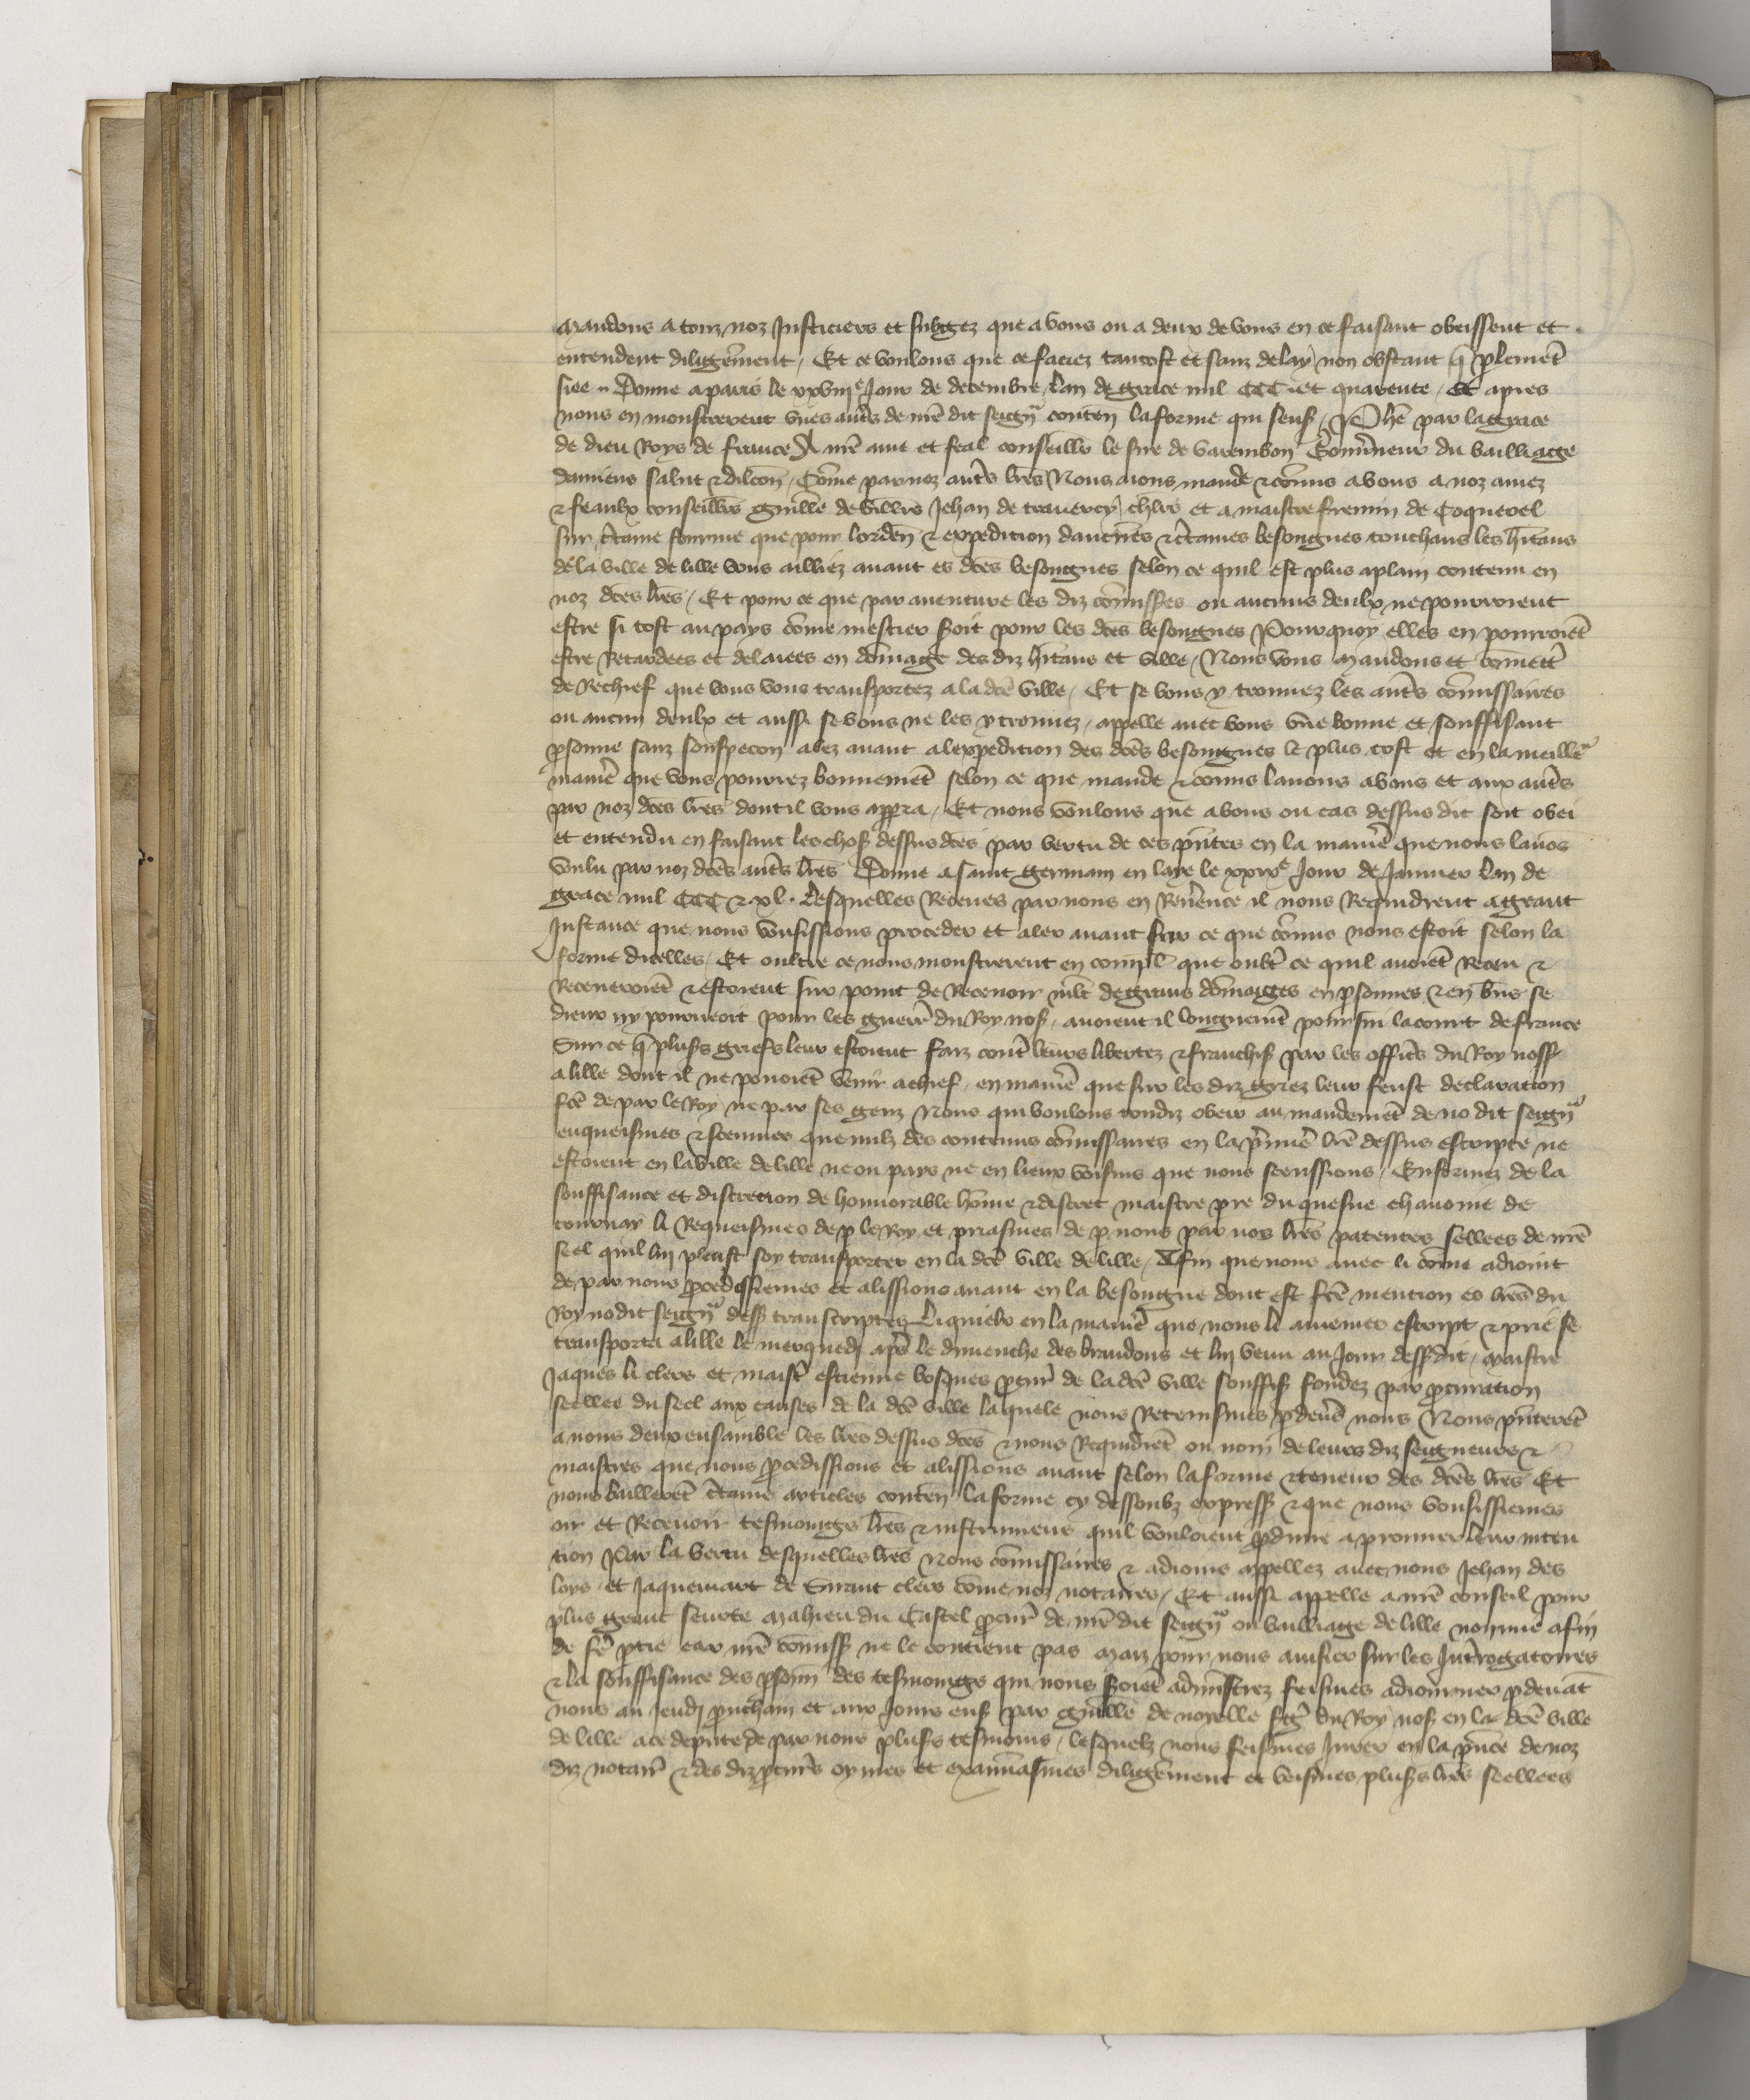 Mandons a touz noz Justiciers et subgez que a vous ou a deux de vous en ce faisant obeissent et
entendent diligẽment / Et ce voulons que ce faciez tantost et sanz delay non obstant q̃ plemẽt
siee // Donne a paris le xxviijᵉ Jour de decembre / Lan de grace mil CCC et quarente / Et apres
nous en monstrerent unes autr̃s de nr̃e dit seignʳ conteñ la forme qui senß / Phẽ par la grace
de dieu Roys de france A nr̃e ame et feal conseiller le sire de varembon Gouv̾neur du bailliage
damiens salut ⁊ dileccõn / Cõme par noz autr̃s lr̃es Nous aions mande ⁊ cõmis a vous a noz amez
⁊ feaulx conseillers guill̃e de villers Jehan de travercy chlr̃s et a maistre fremin de Coquerel
sur c̾taine fourme que pour lordeñ ⁊ expedition daucuñes ⁊ c̾taines besongnes touchans les h̃itans
de la ville de lille vous ailliez avant es dc̃es besongnes selon ce quil est plus aplain contenu en
noz dc̃es lr̃es / Et pour ce que par aventure les diz cõmiss̃es ou aucuns deulx ne pourroient
estre si tost au pays cõme mestier soit pour les dc̃es besongnes Pourquoy elles en pourroiẽt
estre Retardees et delaiees en dõmage des diz h̃itans et ville / Nous vous Mandons et cõmett̾
de Rechief que vous vous transportez a la dc̃e ville / Et se vous y trouvez les autr̃s cõmissaires
ou aucun deulx et aussi se vous ne les y trouvez / appelle avec vous vñe bonne et souffisant
p̱sonne sanz souspecon alez avant a lexpedition des dc̃es besongnes le plus tost et en la meillʳᵉ
manie᷑ que vous pourrez bonnemẽt selon ce que mande ⁊ cõmis lavons a vous et aux autr̃s
par noz dc̃es lr̃es dont il vous app̱ra / Et nous voulons que a vous ou cas dessus dit soit obei
et entendu en faisant les choß dessus dc̃es par vertu de ces pñtes en la manie᷑ que nous lavõs
voulu par noz dc̃es autr̃s lr̃es Donne a saint germain en laye le xxixᵉ Jour de Janvier Lan de
grace mil CCC ⁊ xl. Lesquelles Receues par nous en Rev̾ence il nous Requidrent a grant
Instance que nous vousissions proceder et aler avant sur ce que cõmis nous estoit selon la
forme dicelles / Et oultre ce nous monstrerent en compl̃ que oult̾ ce quil avoiẽt Receu ⁊
Receveroiẽt ⁊ estoient sur point de Recevoir ml̃t de grans dõmaiges en p̱sonnes ⁊ en bñs se
dieux ny pourveoit pour les guerr̃ du Roy noß / avoient il longuemẽ poursui la court de france
Sur ce q̃ plußs griefs leur estoient faiz cont̾ leurs libertez ⁊ franchiß par les offic̃s du Roy noss̃
a lille dont il ne povoiẽt venir a chief / en manie᷑ que sur les diz griez leur feust declaration
fc̃e de par le Roy ne par ses genz Nous qui voulons tondiz obeir au mandemẽt de no dit seignʳ
enqueismes ⁊ sceumes que nulz des contenus cõmissaires en la p̾mie᷑ lr̃e dessus escripte ne
estoient en la ville de lille ne ou pays ne en lieux voisins que nous sceussions / Enformez de la
souffisance et discretion de honnorable hõme ⁊ discret maistre pr̃e du quesne chanoine de
tournay li Requeismes de p̱ le Roy et priasmes de p̱ nous par nos lr̃es patentes sellees de nr̃e
seel quil lui pleust soy transporter en la dc̃e ville de lille / Afin que nous avec li cõme adioint
de par nous p̱cedissiemes et alissions avant en la besongne dont est fc̃e mention es lr̃es du
Roy no dit seignʳ dess̃ transcriptes Liquielx en la manie᷑ que nous li aviemes escript ⁊ prie se
transporta a lille le merquedj apr̃s le dimenche des brandons et lui venu au Jour dess̃ dit / Maistre
Jaques li clers et maist̾ estienne bosques p̱cur̃ de la dc̃e ville souffiß fondez par p̱curation
seellee du seel aux causes de la dc̃e ville laquele nous Retenismes p̱ dev̾s nous Nous p̃nterẽt
a nous deux ensamble les lr̃es dessus dc̃es ⁊ nous Requidrẽt ou nom de leurs diz seigneurs ⁊
maistres que nous p̱cedissions et alissions avant selon la forme ⁊ teneur des dc̃es lr̃es Et
nous baillerẽt c̾tains articles conteñ la forme cy dessoubz express̃ ⁊ que nous vousissiemes
oir et Recevoir tesmoings lr̃es ⁊ instrumens quil vouloient p̱duire a prouver leur inten
tion Par la vertu desquelles lr̃es Nous cõmissaires ⁊ adioins appellez avec nous Jehan des
loys et Jaquemart de Surint clers cõme noz notaires / Et aussi appelle a nr̃e conseil pour
plus grant seurte Mahieu du Castel p̱cur̃ de nr̃e dit seignʳ ou bailliage de lille non mie afin
de fe᷑ p̱tie car nr̃e cõmiss̃ ne le contient pas Maiz pour nous aviser sur les Int̾rogatoires
⁊ la souffisance des p̱soñn des tesmoings qui nous seroiẽt admĩstrez feismes adiourner p̱devãt
nous au Jeudj p̱uchain et aux Jours enß par guill̃e de noyelle sg̾t du Roy noß en la dc̃e ville
de lille a ce depute de par nous plußs tesmoins / lesquelz nous feismes Jurer en la p̃nce de noz
diz notair̃ ⁊ des diz p̱cur̃s oymes et examĩasmes diligẽment et veismes plußs lr̃es seellees